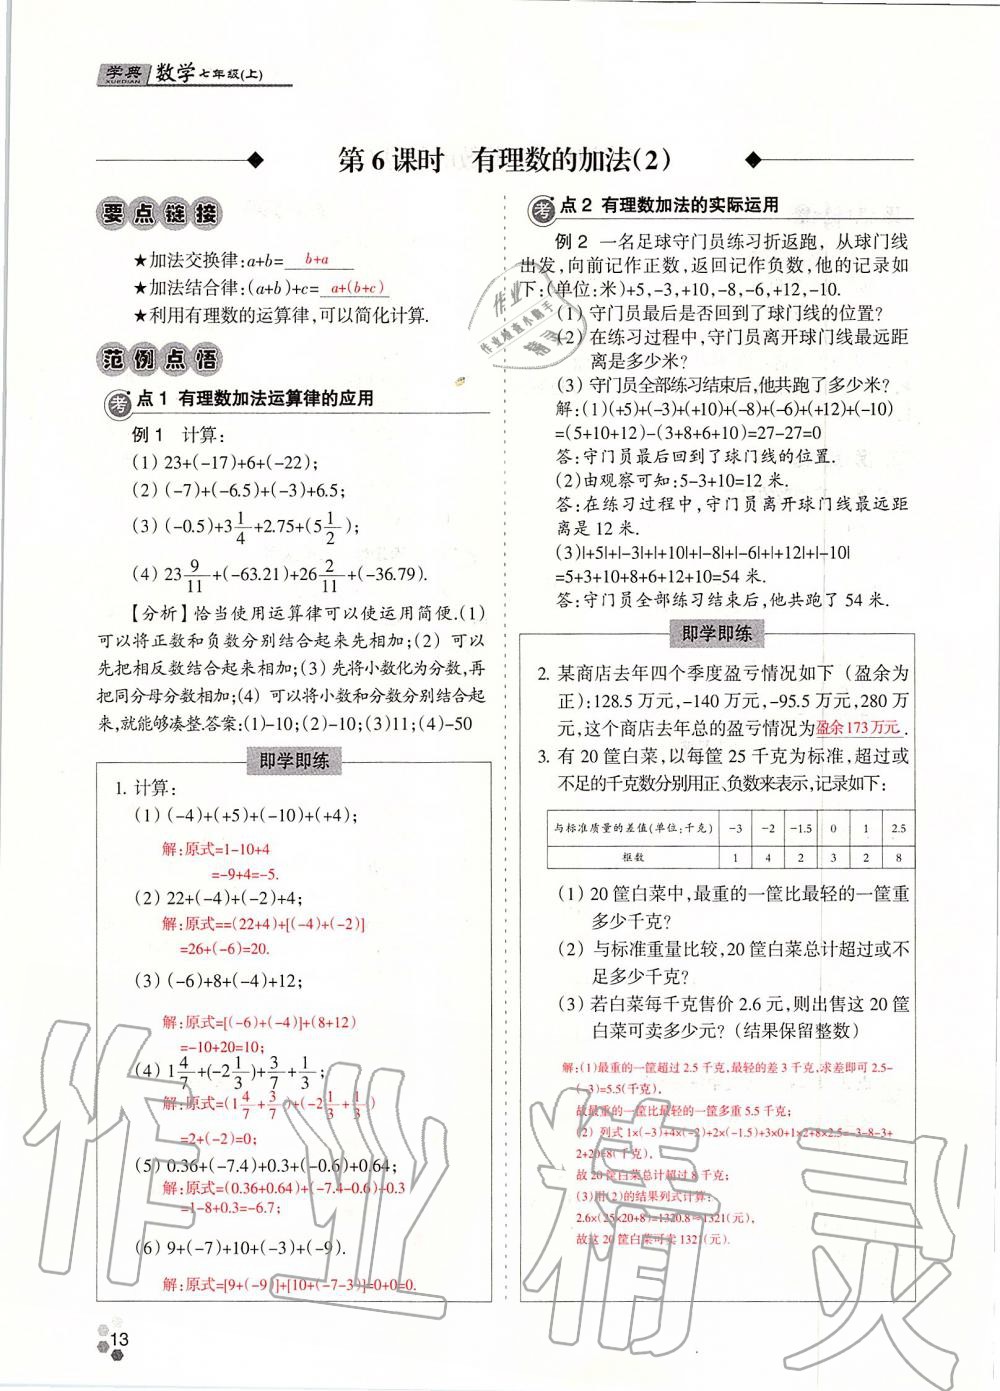 学典 数学 七年级(上)
XUEDIAN
第 6 课时 有理数的加法(2)
要点链接
★加法交换律:a+b= b+a
★加法结合律:(a+b)+c= a+(b+c)
★利用有理数的运算律,可以简化计算.
范例点悟
考点 1 有理数加法运算律的应用
例 1 计算:
(1) 23+(-17)+6+(-22);
(2) (-7)+(-6.5)+(-3)+6.5;
(3) (-0.5)+3 1/4 +2.75+(5 1/2);
(4) 23 9/11 +(-63.21)+26 2/11 +(-36.79).
【分析】恰当使用运算律可以使运用简便.(1)
可以将正数和负数分别结合起来先相加;(2) 可以
先把相反数结合起来相加;(3) 先将小数化为分数,再
把同分母分数相加;(4) 可以将小数和分数分别结合起
来,就能够凑整.答案:(1)-10;(2)-10;(3)11;(4)-50
即学即练
1. 计算:
(1) (-4)+(+5)+(-10)+(+4);
解:原式=1-10+4
=-9+4=-5.
(2) 22+(-4)+(-2)+4;
解:原式==(22+4)+[(-4)+(-2)]
=26+(-6)=20.
(3) (-6)+8+(-4)+12;
解:原式=[(-6)+(-4)]+(8+12)
=-10+20=10;
(4) 1 4/7 +(-2 1/3)+ 3/7 + 1/3;
解:原式=(1 4/7 + 3/7)+(-2 1/3 + 1/3)
=2+(-2)=0;
(5) 0.36+(-7.4)+0.3+(-0.6)+0.64;
解:原式=(0.36+0.64)+(-7.4-0.6)+0.3
=1-8+0.3=-6.7;
(6) 9+(-7)+10+(-3)+(-9).
解:原式=[9+(-9)]+[10+(-7-3)]=0+0=0.
13
考点 2 有理数加法的实际运用
例 2 一名足球守门员练习折返跑,从球门线
出发,向前记作正数,返回记作负数,他的记录如
下:(单位:米)+5,-3,+10,-8,-6,+12,-10.
(1) 守门员最后是否回到了球门线的位置?
(2) 在练习过程中,守门员离开球门线最远距
离是多少米?
(3) 守门员全部练习结束后,他共跑了多少米?
解:(1)(+5)+(-3)+(+10)+(-8)+(-6)+(+12)+(-10)
=(5+10+12)-(3+8+6+10)=27-27=0
答:守门员最后回到了球门线的位置.
(2)由观察可知:5-3+10=12 米.
答:在练习过程中,守门员离开球门线最远距
离是 12 米.
(3)|+5|+|-3|+|+10|+|-8|+|-6|+|+12|+|-10|
=5+3+10+8+6+12+10=54 米.
答:守门员全部练习结束后,他共跑了 54 米.
即学即练
2. 某商店去年四个季度盈亏情况如下(盈余为
正):128.5 万元,-140 万元,-95.5 万元,280 万
元,这个商店去年总的盈亏情况为 盈余 173 万元 .
3. 有 20 筐白菜,以每筐 25 千克为标准,超过或
不足的千克数分别用正、负数来表示,记录如下:
与标准质量的差值(单位:千克) -3 -2 -1.5 0 1 2.5
框数 1 4 2 3 2 8
(1) 20 筐白菜中,最重的一筐比最轻的一筐重
多少千克?
(2) 与标准重量比较,20 筐白菜总计超过或不
足多少千克?
(3) 若白菜每千克售价 2.6 元,则出售这 20 筐
白菜可卖多少元?(结果保留整数)
解:(1)最重的一筐超过 2.5 千克,最轻的差 3 千克,求差即可 2.5-
(-3)=5.5(千克),
故最重的一筐比最轻的一筐多重 5.5 千克;
(2) 列式 1×(-3)+4×(-2)+2×(-1.5)+3×0+1×2+8×2.5=-3-8-3+
2+20=8(千克),
故 20 筐白菜总计超过 8 千克;
(3)用(2)的结果列式计算:
2.6×(25×20+8)=1320.8≈1321(元),
故这 20 筐白菜可卖 1321(元).
作业精灵